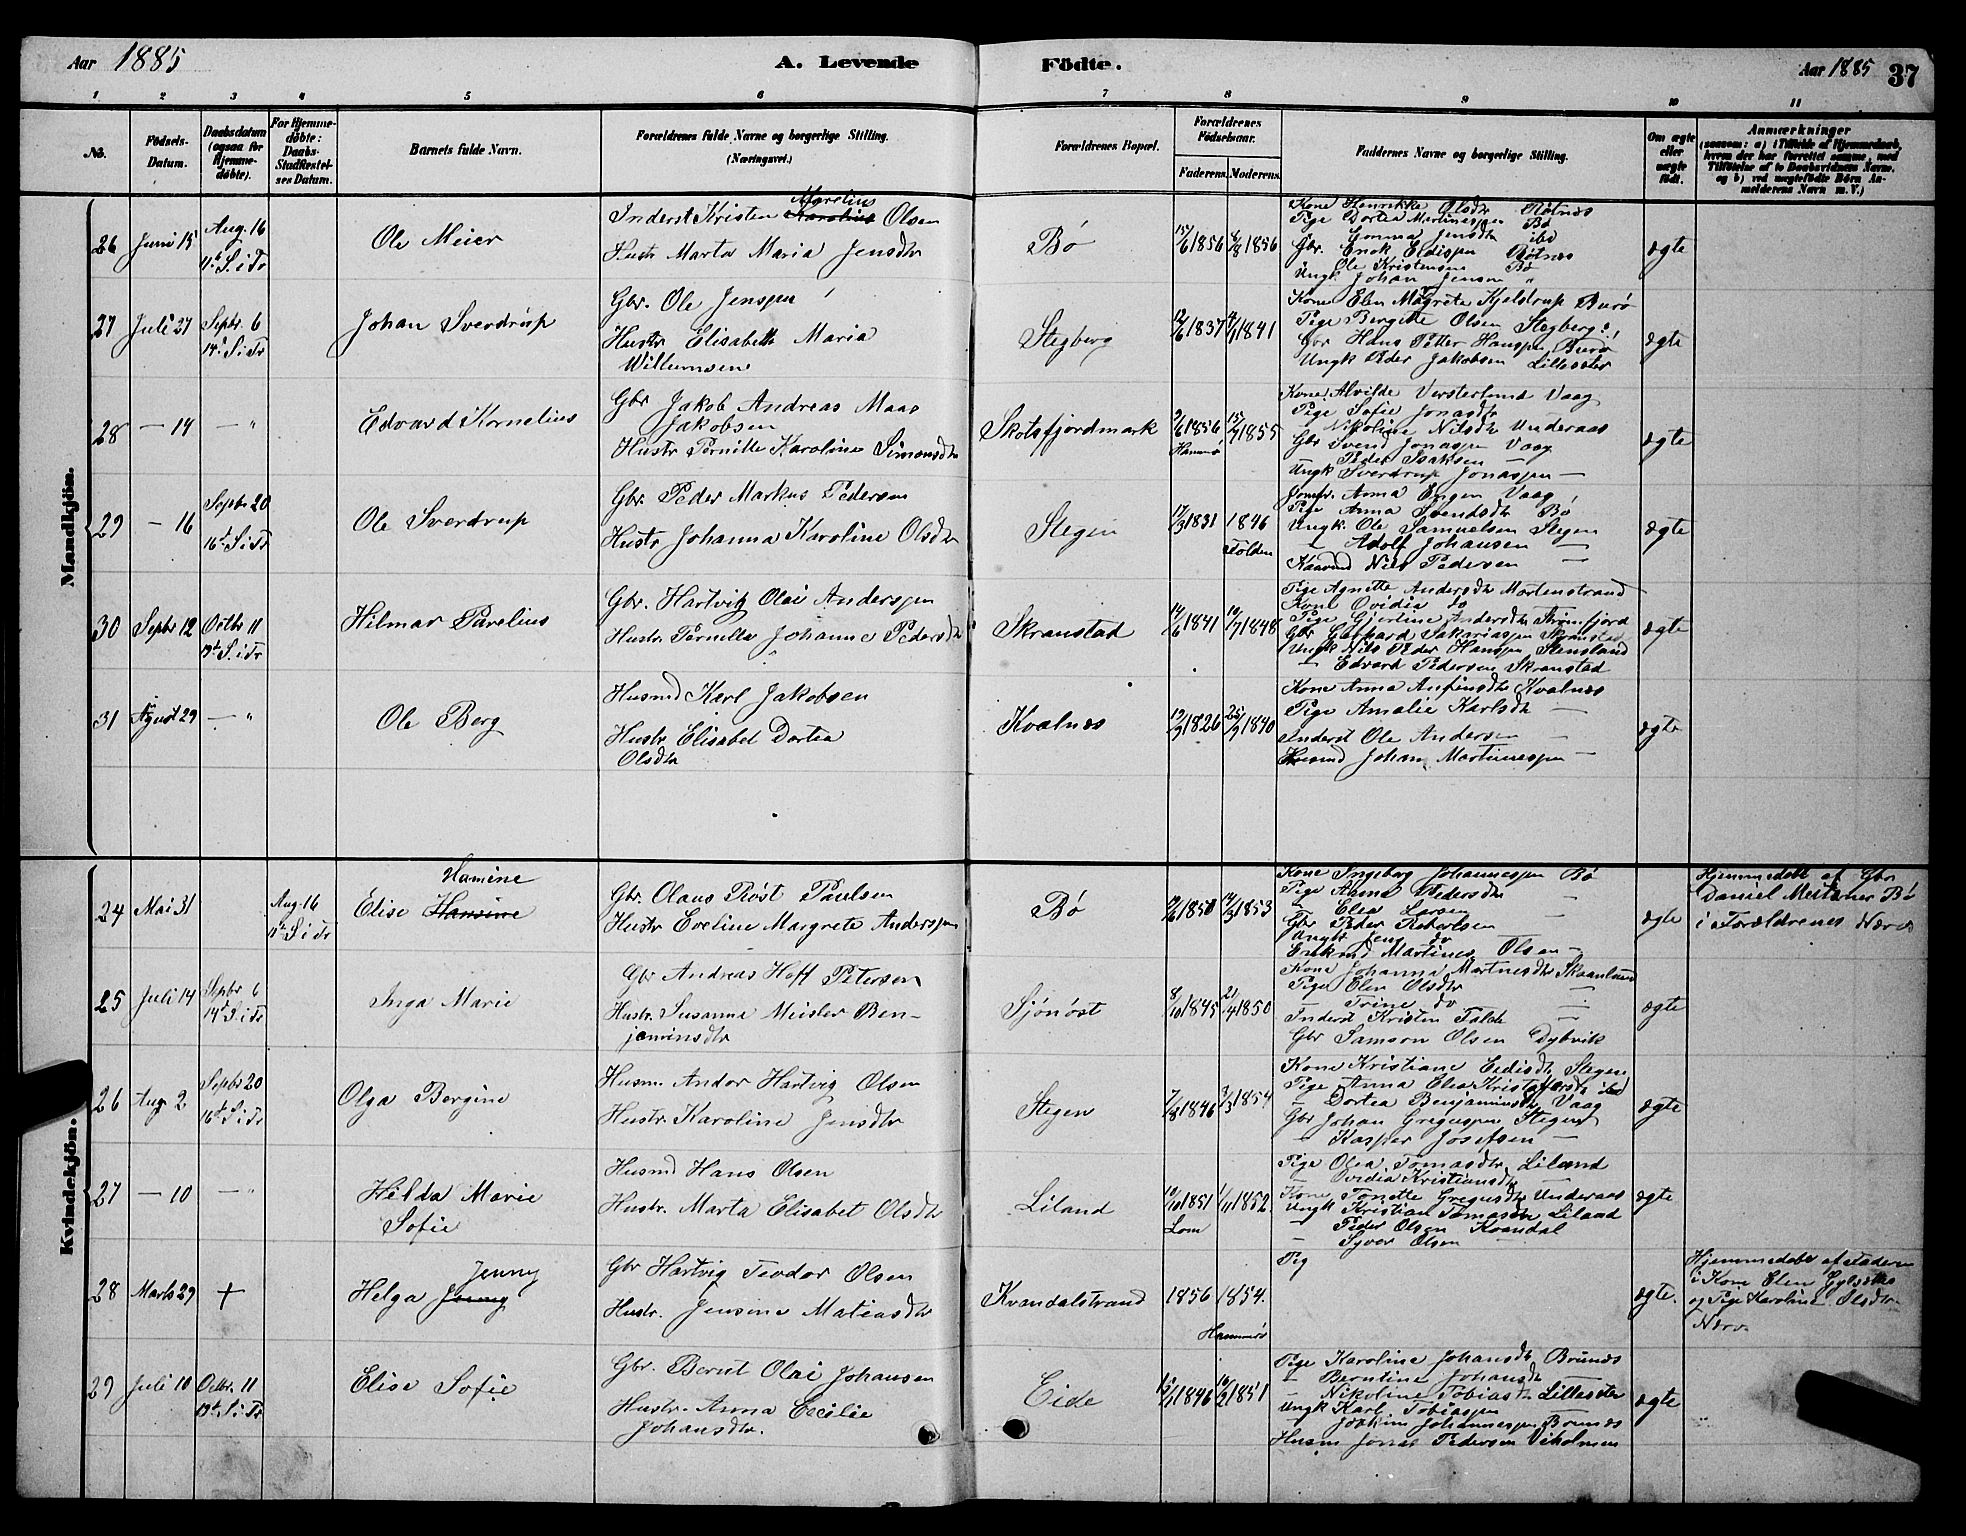 Aar 1885
A. Levende Födte.
Aar 1885 37
1 2 3 4 5 6 7 8 9 10 11
No.
Födsels-
Datum.
Daabsdatum
(ogsaa for
Hjemme-
døbte).
For Hjemme-
døbte:
Daabs-
Stadfæstel-
ses Datum.
Barnets fulde Navn.
Forældrenes fulde Navne og borgerlige Stilling.
(Næringsvei.)
Forældrenes Bopæl.
Forældrenes
Födselsaar.
Faderens. Moderens.
Faddernes Navne og borgerlige Stilling.
Om ægte
eller
uægte
födt.
Anmærkninger
(saasom: a) i Tilfælde af Hjemmedaab,
hvem der har forrettet samme, med
Tilföielse af to Daabsvidners Navne,
og b) ved uægtefödte Börn An-
melderens Navn m. V.)
Mandkjön.
26 Juni 15 Aug. 16
11te S. i Tr
Ole Meier
Inderst Kristen Karelius Marelius Olsen
Hustr Marta Maria Jensdtr
Bø
15/6 1856 8/8 1856
Kone Henrikke Olsdtr Røtnes
Pige Dortea Martinespen Bø
Gbr. Emma Jensdtr ibd
Enok Eldispen Røtnes
Ole Kristensen Bø
Ungk Johan Jensen "
ægte
27 Juli 27 Septbr. 6
14d S. i Tr
Johan Sverdrup
Gbr. Ole Jenspen
Hustr Elisabeth Maria
Willumsen
Stegberg
12/6 1837 4/1 1841
Kone Elen Magrete Kjeldrup Burø
Pige Bergitte Olsen Stegberg
Gbr Hans Petter Hanspen Burø
Ungk Peder Jakobsen Lillester
ægte
28 — 14 — "
Edvard Kornelius
Gbr Jakob Andreas Maas
Jakobsen
Hustr Pernille Karoline Simonsdtr
Skotsfjordmark
9/6 1856 15/7 1855
Hamrø
Kone Alvilde Versterlund Vaag
Pige Sofie Jonasdtr
— Nikoline Nilsdtr Underaas
Gbr Svend Jonaspen Vaag
Peder Isaksen —
Ungk Sverdrup Jonaspen —
ægte
29 — 16 Septbr 20
16d S. i Tr
Ole Sverdrup
Gbr Peder Markus Pedersen
Hustr Johanna Karoline Olsdtr
Stegen
17/3 1831 1846
Folden
Jomfr. Anna Engen Vaag
Pige Anna Svendsdtr Bø
Ungk. Ole Samuelsen Stegen
— Adolf Johansen —
Nils Pedersen —
ægte
30 Septbr 12 Octbr 11
19de S. i Tr
Hilmar Parelius
Gbr. Hartvig Olai Anderspen
Hustr Pernilla Johanne Pedersdtr
Skranstad
14/6 1841 10/7 1848
Pige Agnette Andersdtr Mortenstrand
Kone Ovidia do
Pige Gjertine Andersdtr
Gbr Gerhard Sakariaspen Skranstad
Ungk Nils Peder Hanspen Stensland
— Edvard Pedersen Skranstad
ægte
31 August 29 — "
Ole Berg
Husmd Karl Jakobsen
Hustr Elisabet Dortea
Olsdtr
Kvalnes
19/9 1826 25/9 1840
Kone Anna Anfinsdtr Kvalnes
Pige Amalie Karlsdtr —
Inderst Ole Andersen —
Husmd Johan Martinuspen —
ægte
Kvindekjön.
24 Mai 31 Aug. 16
11te S. i Tr
Hamine
Elise Hansine
Gbr. Olaus Røst Paulsen
Hustr Eveline Margrete Anderspen
Bø
1850 14/3 1853
Kone Ingeborg Johannespen Bø
Pige Anna Pedersdtr —
— Elea Larsen
Gbr Peder Robertsen —
Ungk Jens do
Enkmd Martines Olsen —
ægte
Hjemmedøbt af Gbr
Daniel Meisner Bø
i Forældrenes Nærv
25 Juli 14 Septbr 6
14d S. i Tr
Inga Marie
Gbr Andreas Hoff Petersen
Hustr. Susanna Meisler Ben-
jaminsdtr
Sjønøst
8/10 1845 21/4 1850
Kone Johanna Martinesdtr Skaanlund
Pige Elen Olsdtr —
— Trine do —
Inderst Kristen Falch —
Gbr Samson Olsen Dybvik
ægte
26 Aug 2 Septbr 20
16d S. i Tr
Olga Bergine
Husm. Andor Hartvig Olsen
Hustr. Karoline Jensdtr
Stegen
7/8 1846 7/3 1854
Kone Kristiane Eedisdtr Stegen
Pige Anna Elea Kristoffersdtr ibd
— Dortea Benjaminsdtr Vaag
Gbr Johan Greguspen Stegen
— Kasper Josefsen —
ægte
27 — 10 — "
Hilda Marie
Sofie
Husmd Hans Olsen
Hustr. Marta Elisabet Olsdtr
Liland
10/10 1851 1/11 1852.
Lom
Pige Olea Tomasdtr Liland
Ovidia Kristiansdtr —
Kone Tonette Gregusdtr Underaas
Ungk Kristian Tomasdtr Liland
— Peder Olsen Kvandal
— Syver Olsen —
ægte
28 Marts 29 +
Jenny
Helga Jenny
Gbr Hartvig Teodor Olsen
Hustr. Jensine Matiasdtr
Kvandalstrand
1856 1854.
Hammerø
Pig
ægte.
Hjemmedøbt af Faderen
i Kone Elen
og Pige Karoline Olsdtr
Nærv.
29 Juli 10 Octbr. 11
19de S. i Tr
Elise Sofie
Gbr. Bernt Olai Johansen
Hustr. Anna Cecilie
Johansdtr.
Eide
1846 16/2 1851
Pige Karoline Johansdtr Brunes
— Berntine Johansdtr —
— Nikoline Tobiasdtr Lillester
Ungk Karl Tobiaspen —
— Joakim Johannespen Brunes
Husm Jonas Pedersen Vikolmen
ægte